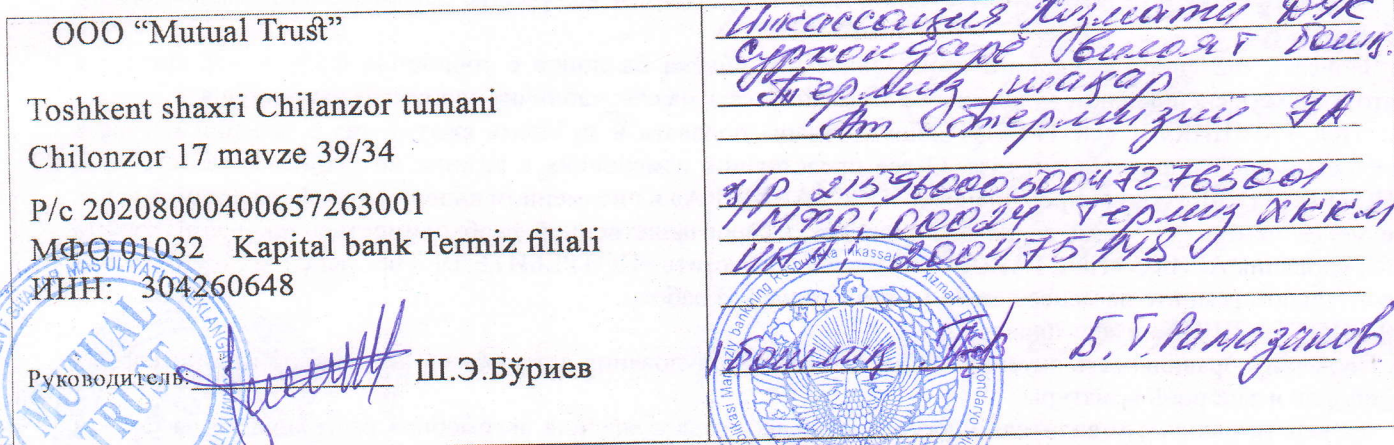 ООО “Mutual Trust”
Toshkent shaxri Chilanzor tumani
Chilonzor 17 mavze 39/34
Р/с 20208000400657263001
МФО 01032 Kapital bank Termiz filiali
ИНН: 304260648
Руководитель: Ш.Э.Бўриев
MUTUAL
TRUST
Инкассация Хизмати ДУК
Сурхондарё вилоят бошқ.
Термиз шаҳар
Ат Термизий
Х/Р 21596000500472765001
МФО: 00024 Термиз ХККМ
ИНН: 200475148
Бошлиқ Б.Т.Рамазанов